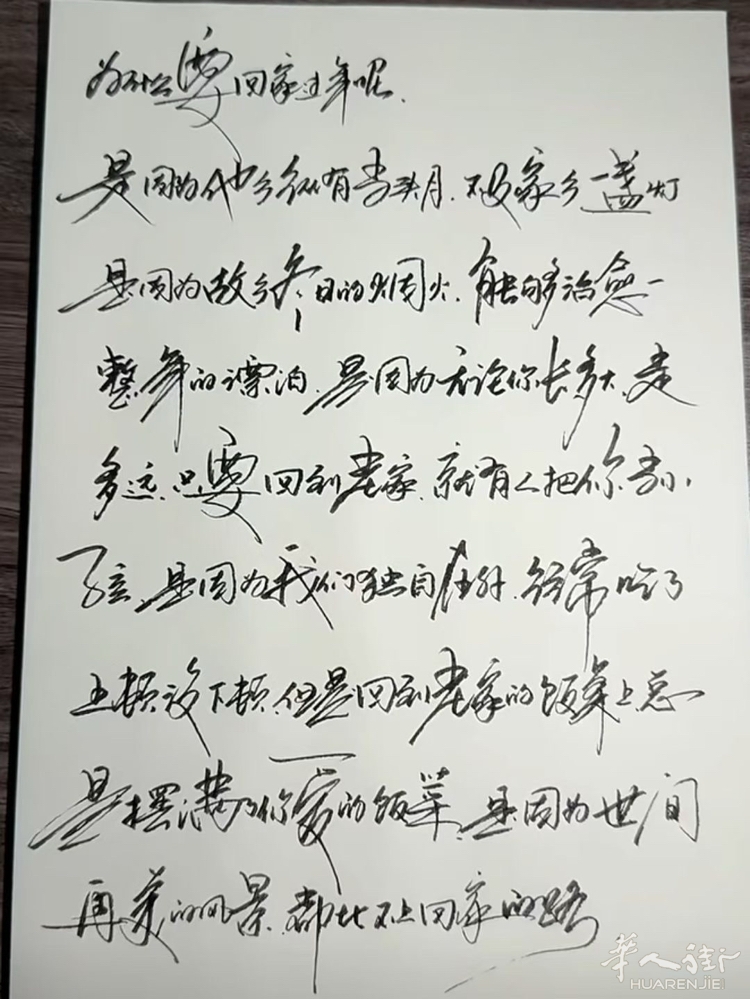 为什么要回家过年呢、
是因为他乡纵有当头月、不及家乡一盏灯
是因为故乡冬日的烟火、能够治愈一
整年的漂泊、是因为无论你长多大、走
多远、只要回到老家、就有人把你当小
孩、是因为我们独自在外、经常吃了
上顿没下顿、但是回到老家的饭桌上总
是摆满了你爱的饭菜、是因为世间
再美的风景、都比不上回家的路
華人街
HUARENJIE